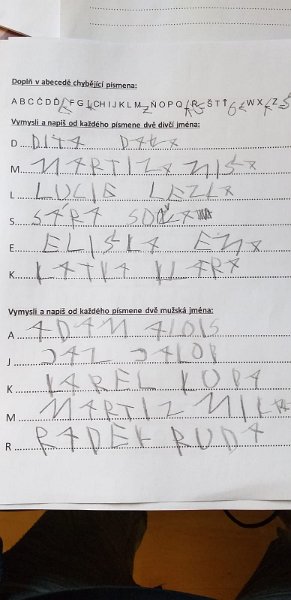 Doplň v abecedě chybějící písmena:
A B C Č D Ď E F G H CH I J K L M N Ň O P Q R Ř S Š T Ť U V W X Y Z Ž
Vymysli a napiš od každého písmene dvě dívčí jména:
D DITA DAŠA
M MARTINA MIŠA
L LUCIE LENA
S SÁRA SOŇA
E ELIŠKA EMA
K KATKA KLÁRA
Vymysli a napiš od každého písmene dvě mužská jména:
A ADAM ALOIS
J JAN JAKOB
K KAREL KUBA
M MARTIN MILAN
R RADEK RUDA